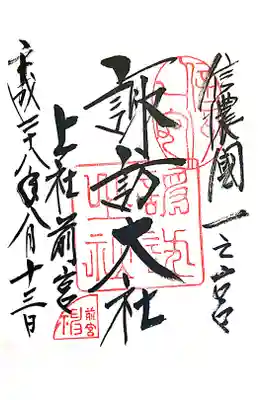 信濃國一之宮
諏訪大社
上社前宮
平成二十八年八月十三日
諏訪大社
前宮